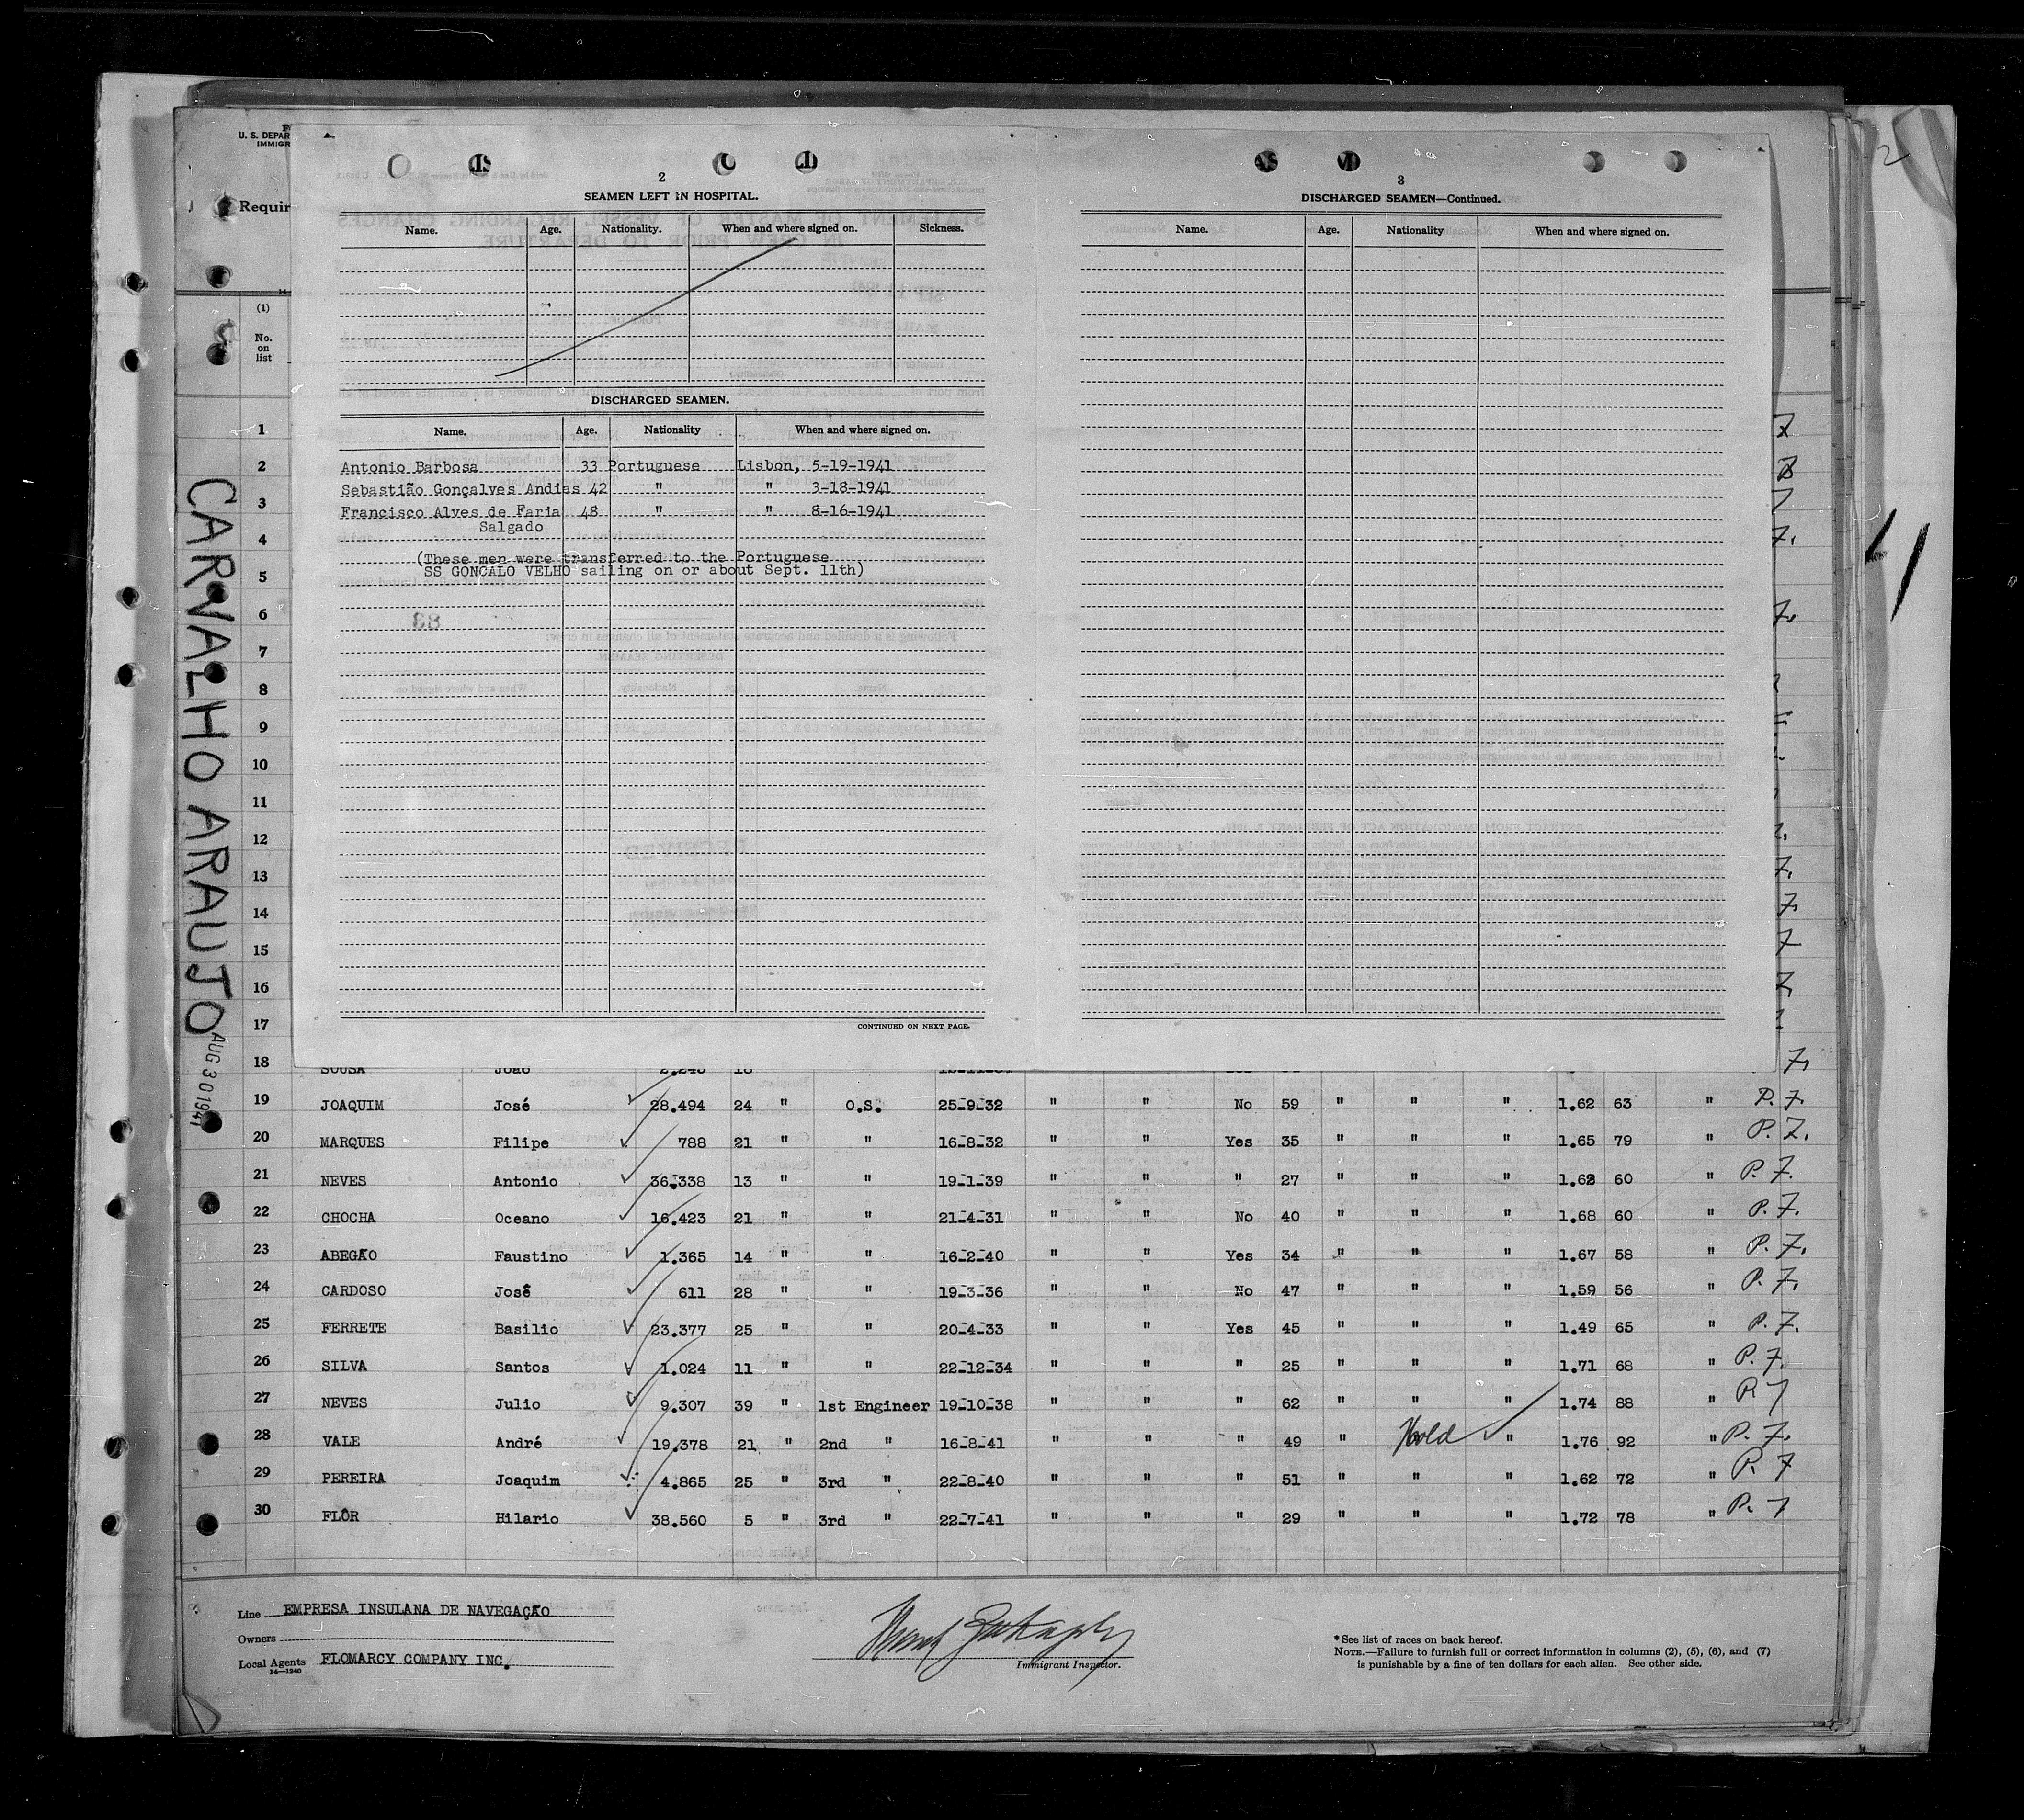 U. S. DEPAR
IMMIGR
Requir
2
SEAMEN LEFT IN HOSPITAL.
Name. Age. Nationality. When and where signed on. Sickness.
DISCHARGED SEAMEN.
Name. Age. Nationality When and where signed on.
Antonio Barbosa 33 Portuguese Lisbon, 5-19-1941
Sebastião Gonçalves Andias 42 " " 3-18-1941
Francisco Alves de Faria 48 " " 8-16-1941
Salgado
(These men were transferred to the Portuguese
SS GONÇALO VELHO sailing on or about Sept. 11th)
83
CONTINUED ON NEXT PAGE.
3
DISCHARGED SEAMEN—Continued.
Name. Age. Nationality When and where signed on.
2
CARVALHO ARAUJO
AUG 30 1941
(1)
No.
on
list
1
2
3
4
5
6
7
8
9
10
11
12
13
14
15
16
17
18 SOUSA João
19 JOAQUIM José 28.494 24 " O.S. 25-9-32 " " No 59 " " " 1.62 63 " P. F.
20 MARQUES Filipe 788 21 " " 16-8-32 " " Yes 35 " " " 1.65 79 " P. F.
21 NEVES Antonio 36.338 13 " " 19-1-39 " " " 27 " " " 1.68 60 " P. F.
22 CHOCHA Oceano 16.423 21 " " 21-4-31 " " No 40 " " " 1.68 60 " P. F.
23 ABEGÃO Faustino 1.365 14 " " 16-2-40 " " Yes 34 " " " 1.67 58 " P. F.
24 CARDOSO José 611 28 " " 19-3-36 " " No 47 " " " 1.59 56 " P. F.
25 FERRETE Basilio 23.377 25 " " 20-4-33 " " Yes 45 " " " 1.49 65 " P. F.
26 SILVA Santos 1.024 11 " " 22-12-34 " " " 25 " " " 1.71 68 " P. F.
27 NEVES Julio 9.307 39 " 1st Engineer 19-10-38 " " " 62 " " " 1.74 88 " P. F
28 VALE André 19.378 21 " 2nd " 16-8-41 " " " 49 " Hold " 1.76 92 " P. F.
29 PEREIRA Joaquim 4.865 25 " 3rd " 22-8-40 " " " 51 " " " 1.62 72 " P. F
30 FLÔR Hilario 38.560 5 " 3rd " 22-7-41 " " " 29 " " " 1.72 78 " P. F
Line EMPRESA INSULANA DE NAVEGAÇÃO
Owners
Local Agents FLOMARCY COMPANY INC.
14—1240
Immigrant Inspector.
*See list of races on back hereof.
NOTE.—Failure to furnish full or correct information in columns (2), (5), (6), and (7)
is punishable by a fine of ten dollars for each alien. See other side.